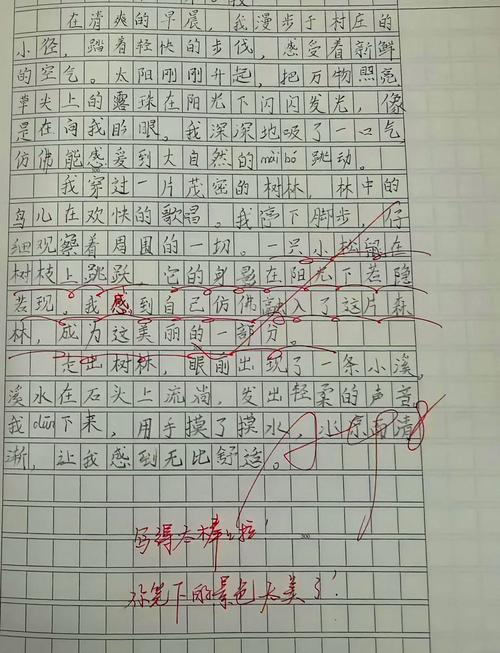 在清爽的早晨，我漫步于村庄的
小径，踏着轻快的步伐，感受着新鲜
的空气。太阳刚刚升起，把万物照亮
草尖上的露珠在阳光下闪闪发光，像
是在向我眨眼。我深深地吸了一口气，
仿佛能感爱到大自然的mài bó跳动。
我穿过一片茂密的树林，林中的
鸟儿在欢快的歌唱。我停下脚步，仔
细观察着周围的一切。一只小松鼠在
树枝上跳跃，它的身影在阳光下若隐
若现。我感到自己仿佛融入了这片森
林，成为这美丽的一部分。
走出树林，眼前出现了一条小溪。
溪水在石头上流淌，发出轻柔的声音
我dūn下来，用手摸了摸水，冰凉而清
澈，让我感到无比舒适。
98
写得太棒啦！
你笔下的景色太美了！